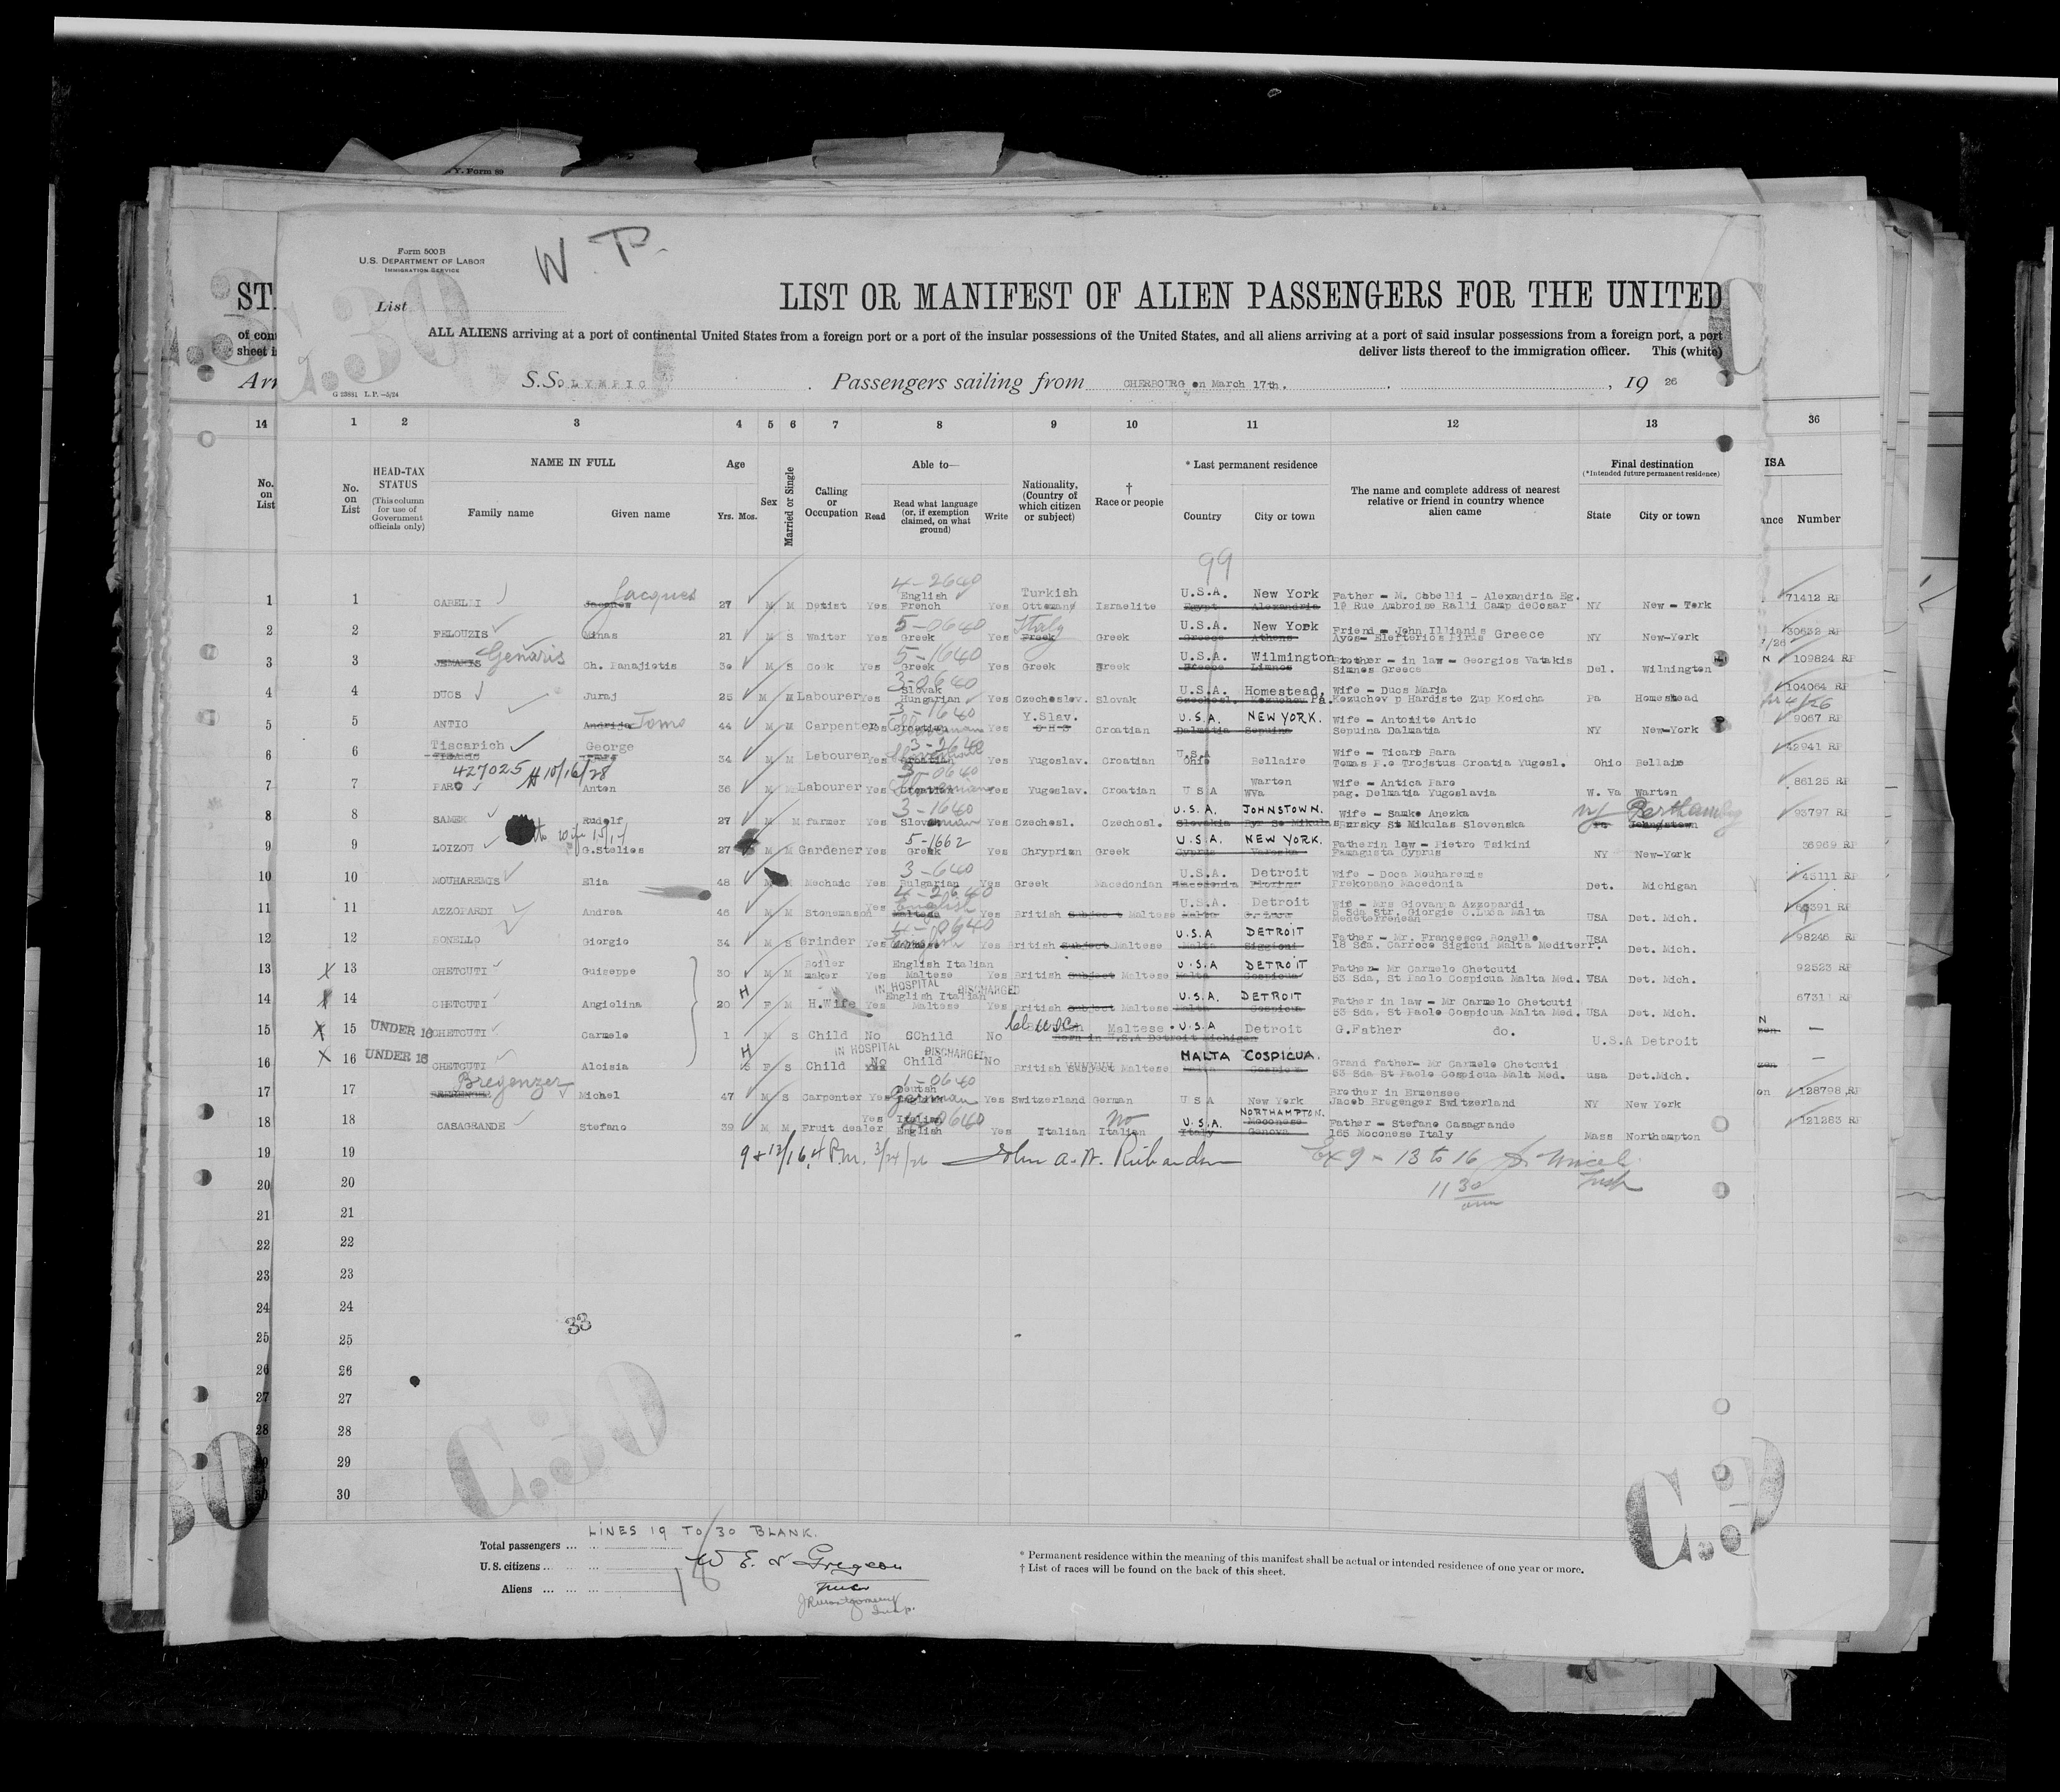 Y. Form 89
Form 500 B
U.S. DEPARTMENT OF LABOR
IMMIGRATION SERVICE
W. P.
ST
List
LIST OR MANIFEST OF ALIEN PASSENGERS FOR THE UNITED
ALL ALIENS arriving at a port of continental United States from a foreign port or a port of the insular possessions of the United States, and all aliens arriving at a port of said insular possessions from a foreign port, a port
deliver lists thereof to the immigration officer. This (white)
S.S. OLYMPIC Passengers sailing from CHERBOURG on March 17th. , 19 26
G 23881 L.P.—5/24
14 1 2 3 4 5 6 7 8 9 10 11 12 13 36
No. on List
No. on List
HEAD-TAX STATUS
(This column for use of Government officials only)
NAME IN FULL
Family name
Given name
Age
Yrs. Mos.
Sex
Married or Single
Calling or Occupation
Able to—
Read
Read what language (or, if exemption claimed, on what ground)
Write
Nationality. (Country of which citizen or subject)
† Race or people
* Last permanent residence
Country
City or town
The name and complete address of nearest relative or friend in country whence alien came
Final destination
(*Intended future permanent residence)
State
City or town
ISA
ance Number
99
1 1 CABELLI Jacques Jacques 27 M M Detist Yes 4-2640 English French Yes Turkish Ottomany Israelite U.S.A. New York Egypt Alexandria Father - M. Cbbelli - Alexandria Eg. 19 Rue Ambroise Ralli Camp deCesar NY New-York 71412 RP
2 2 PELOUZIS Minas 21 M S Waiter Yes 5-0640 Greek Yes Italy Greek Greek U.S.A. New York Greece Athens Friend - John Illianis Ayos- Elefterios Pirus Greece NY New-York 30632 RP
3 3 Genaris Ch. Panajiotis 30 M S Cook Yes 5-1640 Greek Yes Greek Greek U.S.A. Wilmington Greece Limnos Brother - in law - Georgios Vatakis Simnos Greece Del. Wilnington 109824 RP
4 4 DUCS Juraj 25 M M Labourer Yes 3-0640 Slovak Hungarian Yes Czechoslov. Slovak U.S.A. Homestead, Pa. Wife - Ducs Maria Kozuchov p Hardiste Zup Kosicha Pa Homestead 104064 RP
5 5 ANTIC Andrija Tomo 44 M M Carpenter Yes 3-1640 Croatian Yes Y.Slav. S H S Croatian U.S.A. NEW YORK. Dalmatia Sepuina Wife - Antonite Antic Sepuina Dalmatia NY New-York 9067 RP
6 6 Tiscarich George 34 M M Labourer Yes Croatian Yes Yugoslav. Croatian U.S.A Ohio Bellaire Wife - Ticare Bara Tomas P.o Trojstus Croatia Yugosl. Ohio Bellaire 42941 RP
427025 10/16/28
7 7 PARO Anton 36 M M Labourer Yes 3-0640 Croatian Yes Yugoslav. Croatian U S A Warton WVa Wife - Antica Paro pag. Delmatia Yugoslavia W. Va Warton 86125 RP
8 8 SAMEK Rudolf 27 M M farmer Yes 3-1640 Yes Czechosl. Czechosl. U.S.A. JOHNSTOWN. Wife - Samko Anezka St Mikulas Slovenska Pa Johnstown 93797 RP
9 9 LOIZOU G.Stelios 27 M M Gardener Yes 5-1662 Greek Yes Chryprian Greek U.S.A. NEW YORK. Cyprus Fatherin law - Pietro Tsikini Famagusta Cyprus NY New-York 36969 RP
10 10 MOUHAREMIS Elia 48 M M Mechaic Yes 3-640 Bulgarian Yes Greek Macedonian U.S.A. Detroit Macedonia Wife - Doca Mouharemis Prekopano Macedonia Det. Michigan 45111 RP
11 11 AZZOPARDI Andrea 46 M M Stonemason Yes 4-2640 English Maltese Yes British Subject Maltese U.S.A. Detroit Malta Wif - Mrs Giovanna Azzopardi 5 Sda Str. Giorgie C.Luca Malta Mediterrenean USA Det. Mich. 60391 RP
12 12 BONELLO Giorgio 34 M S Grinder Yes Yes British Subject Maltese U.S.A DETROIT Malta Siggioni Father - Mr. Francesco Bonello 18 Sda. Carreco Sigicui Malta Mediterr. USA Det. Mich. 98246 RP
X 13 13 CHETCUTI Guiseppe 30 M M Boiler maker Yes English Italian Maltese Yes British Subject Maltese U.S.A DETROIT Malta Cospicua Father- Mr Carmelo Chetcuti 53 Sda, St Paolo Cospicua Malta Med. USA Det. Mich. 92523 RP
IN HOSPITAL DISCHARGED
X 14 14 CHETCUTI Angiolina 20 H F M H.Wife Yes English Italian Maltese Yes British Subject Maltese U.S.A. DETROIT Malta Cospicua Father in law - Mr Carmelo Chetcuti 53 Sda. St Paolo Cospicua Malta Med. USA Det. Mich. 67311 RP
X 15 15 UNDER 16 CHETCUTI Carmelo 1 M S Child No SChild No Maltese U.S.A Detroit Born in U.S.A Detroit Michigan G.Father do. U.S.A Detroit —
IN HOSPITAL DISCHARGED
X 16 16 UNDER 16 CHETCUTI Aloisia H F S Child No Child No British Subject Maltese MALTA COSPICUA. Malta Cospicua Grand father- Mr Carmelo Chetcuti 53 Sda St Paolo Cospicua Malt Med. usa Det.Mich. —
17 17 Bregenzer Michel 47 M S Carpenter Yes 1-0640 Deutsh German Yes Switzerland German U S A New York Brother in Ermensee Jacob Bregenger Switzerland NY New York 128798 RP
18 18 CASAGRANDE Stefano 39 M M Fruit dealer Yes Italian English Yes Italian Italian No U.S.A. NORTHAMPTON. Italy Moconese Genova Father - Stefano Casagrande 165 Moconese Italy Mass Northampton 121283 RP
19 19 4 P.M. 3/24/26 John A. W. Richardson Ex 9 - 13 to 16
20 20 11 30
21 21
22 22
23 23
24 24
33
25 25
26 26
27 27
28 28
29 29
30 30
C.30
LINES 19 TO 30 BLANK.
Total passengers ... ...
U.S. citizens ... ...
Aliens ... ... ...
J R Montgomery
Insp.
* Permanent residence within the meaning of this manifest shall be actual or intended residence of one year or more.
† List of races will be found on the back of this sheet.